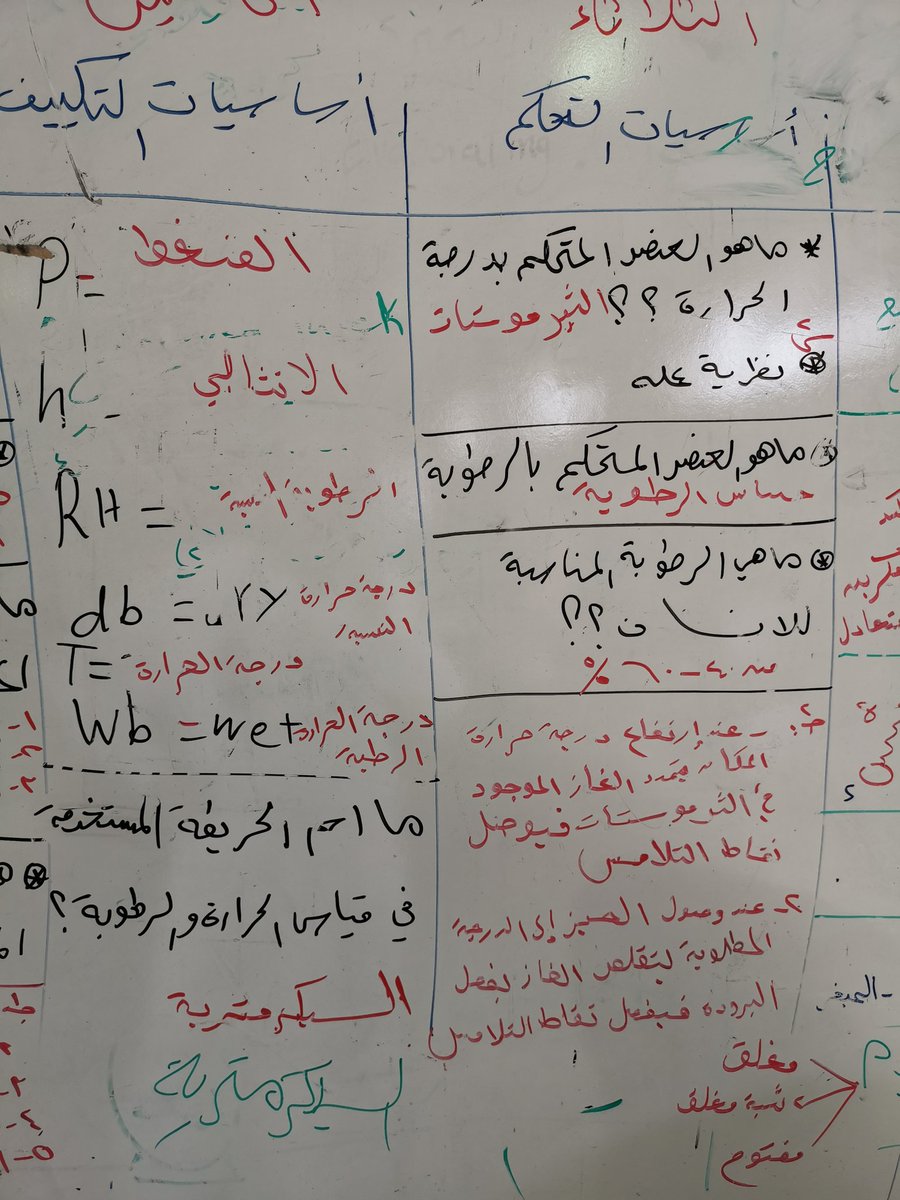 الثلاثاء
أساسيات التحكم
* ماهو العنصر المتحكم بدرجة
الحرارة ؟؟ الثيرموستات
نظرية عمله
ماهو العنصر المتحكم بالرطوبة
حساس الرطوبة
ماهي الرطوبة المناسبة
للانسان ؟؟
من ٤٠ – ٦٠ %
ج: - عند إرتفاع درجة حرارة
المكان يتمدد الغاز الموجود
في الثرموستات فيوصل
نقاط التلامس
٢- عند وصول الحيز إلى الدرجة
المطلوبة يتقلص الغاز بفعل
البرودة فيفصل نقاط التلامس
مغلق
شبة مغلق
مفتوح
أساسيات التكييف
P = الضغط
K
h - الانثالبي
RH = الرطوبة النسبية
db = درجة حرارة
T = درجة الحرارة
Wb = wet درجة الحرارة
الرطبة
ما اسم الخريطة المستخدمة
في قياس الحرارة والرطوبة ؟
السيكرومترية
السايكرومترية